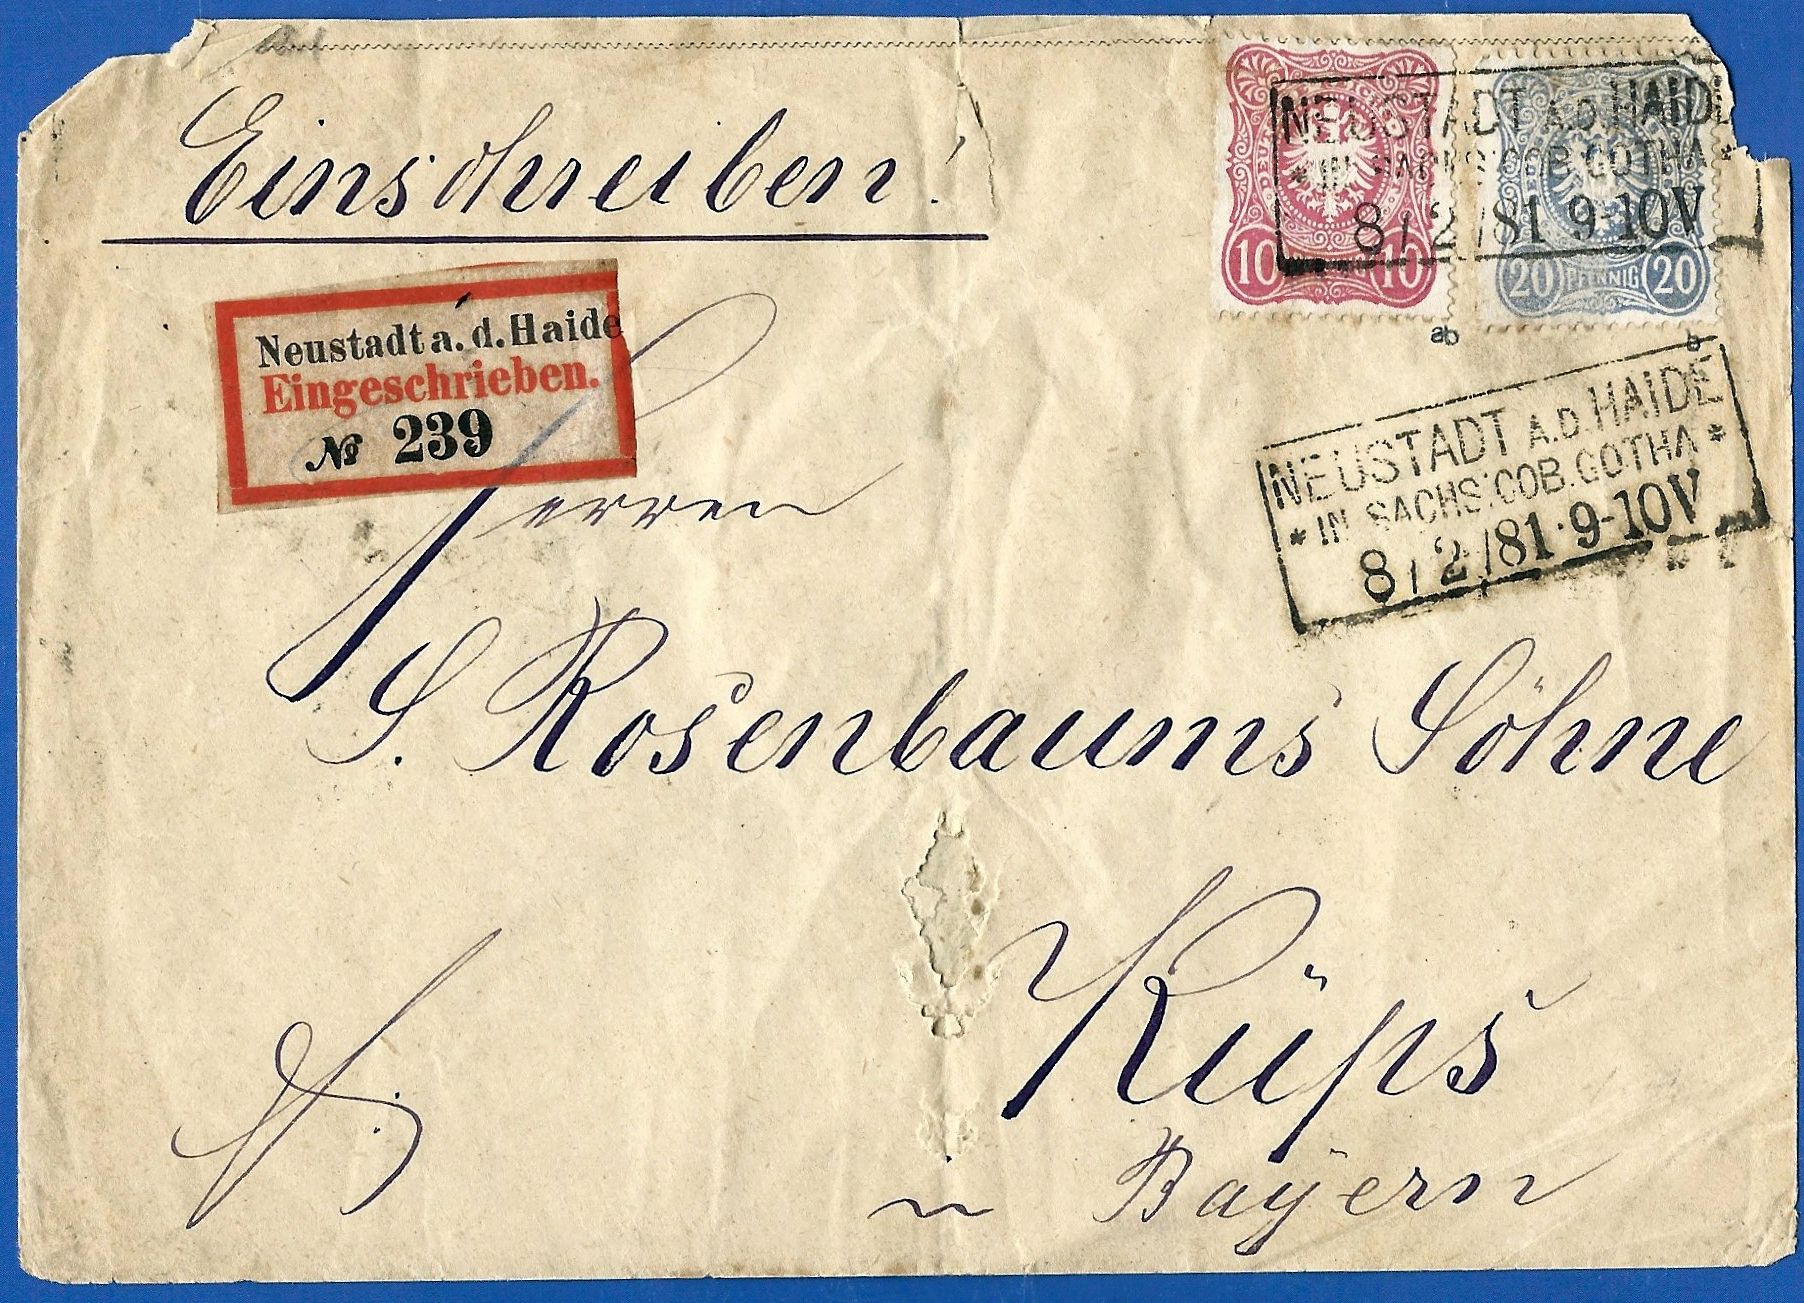 Einschreiben!
NEUSTADT A.D. HAIDE
* IN SACHS. COB. GOTHA *
8 / 2 /81 9-10V
10 10
20 PFENNIG 20
ab
b
Neustadt a. d. Haide
Eingeschrieben.
№ 239
NEUSTADT A.D. HAIDE
* IN SACHS. COB. GOTHA *
8 / 2 /81 · 9-10V
Herren
S. Rosenbaums Söhne
Küps
in Bayern